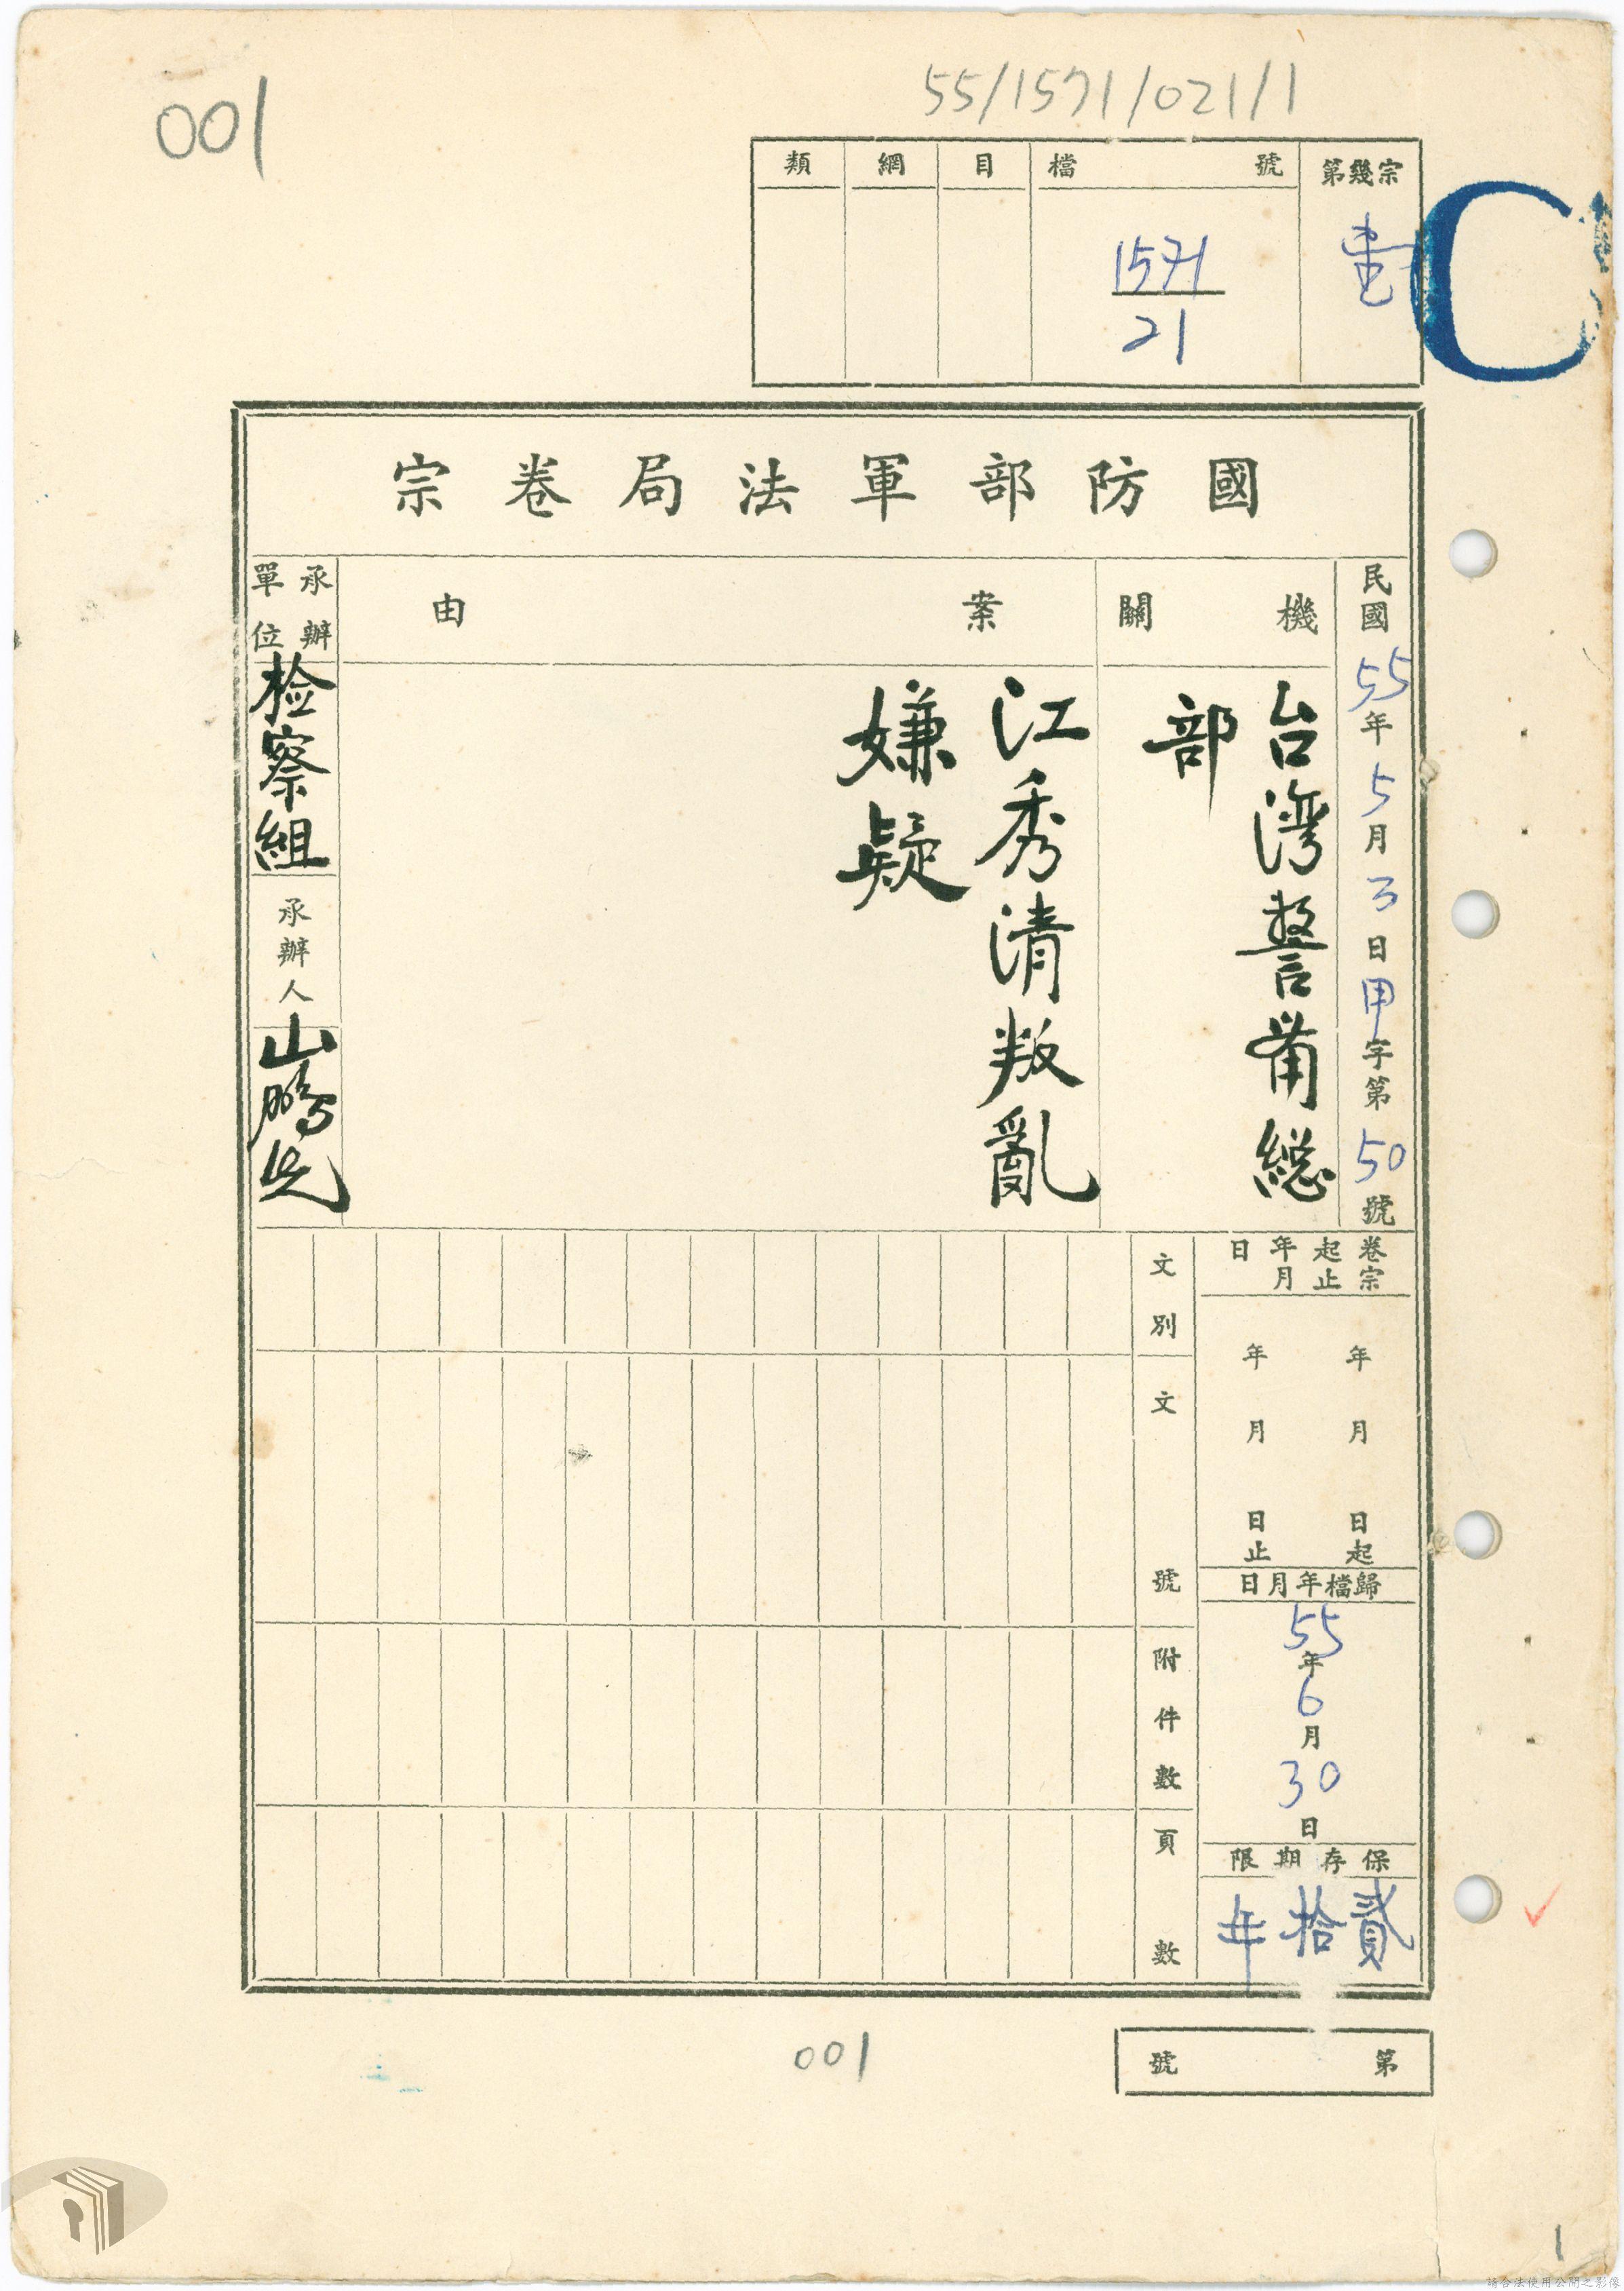 001
55/1571/021/1
第幾宗
檔號
目
綱
類
壹
1571
21
C
國防部軍法局卷宗
民國55年5月3日甲字第50號
機關
台灣警備總
部
案由
江秀清叛亂
嫌疑
承辦單位
检察組
承辦人
卷宗起止年月日
年月日起
年月日止
歸檔年月日
55年6月30日
保存期限
貳拾年
文別
文號
附件數
頁數
第號
001
1
請合法使用公開之影像